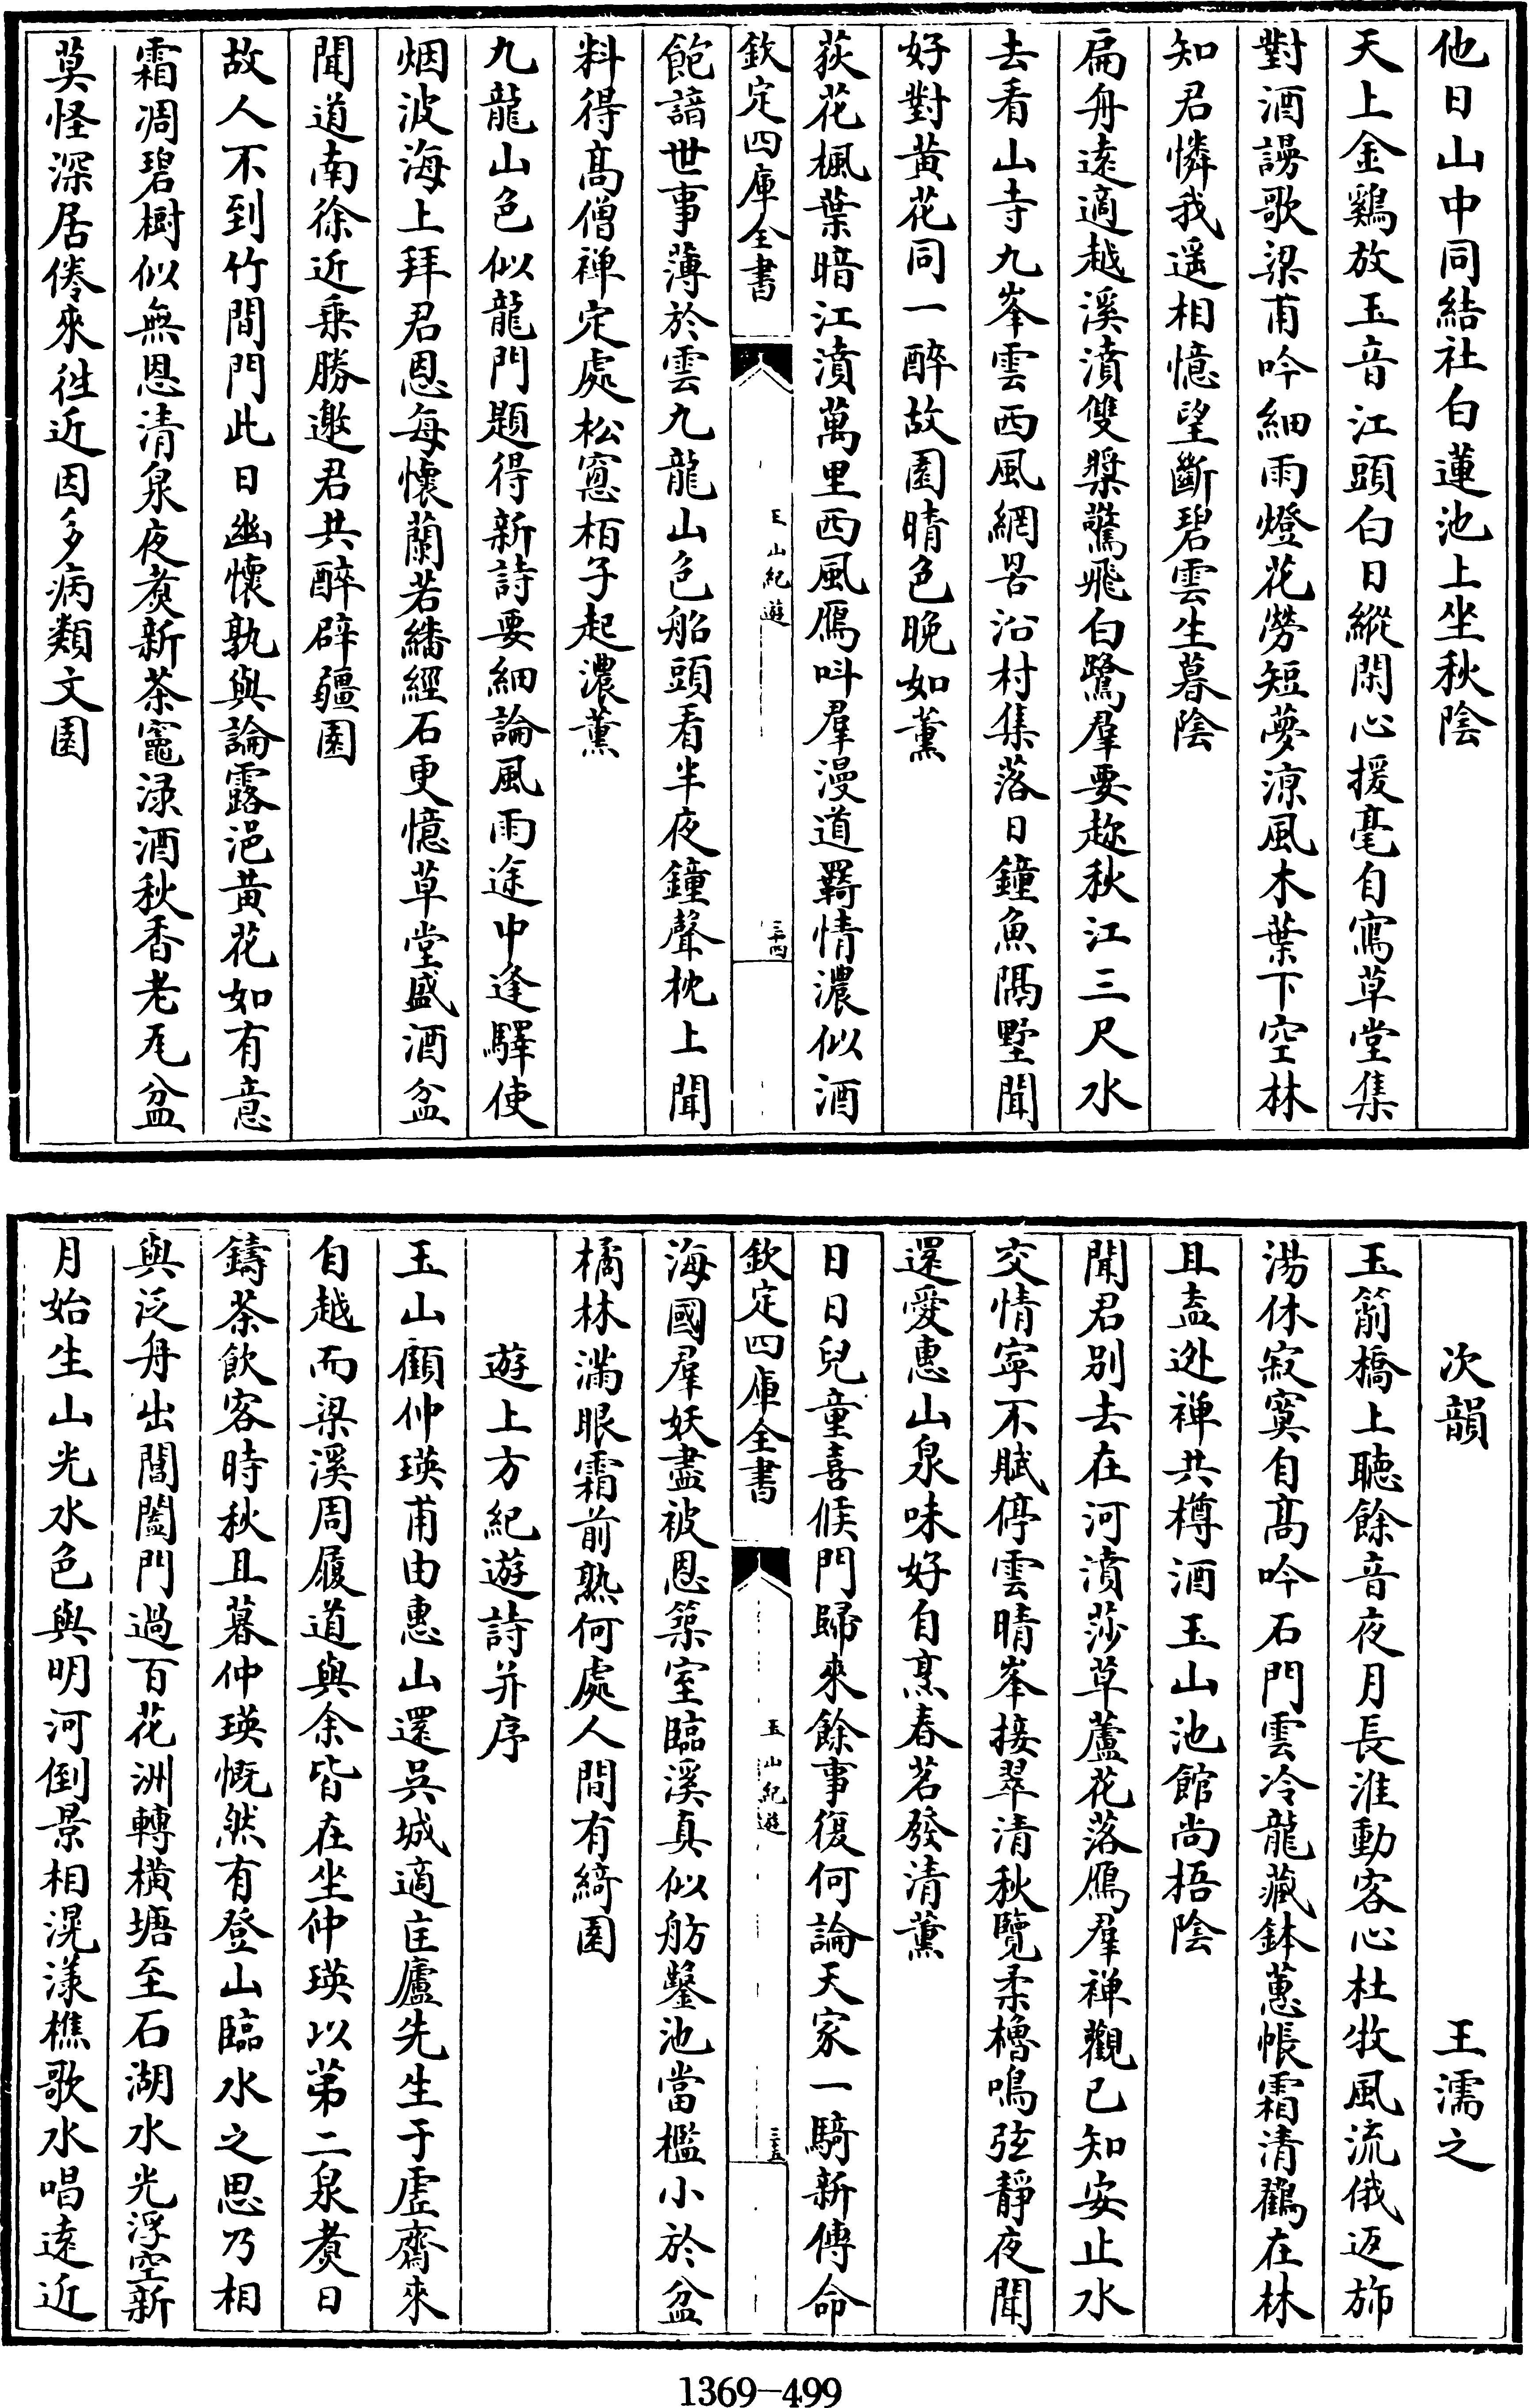 他日山中同結社白蓮池上坐秋陰
天上金鷄放玉音江頭白日縱閑心援毫自寫草堂集
對酒謾歌梁甫吟細雨燈花勞短夢涼風木葉下空林
知君憐我遥相憶望斷碧雲生暮陰
扁舟遠適越溪濆雙槳驚飛白鷺羣要趂秋江三尺水
去看山寺九峯雲西風網罟沿村集落日鐘魚隔墅聞
好對黄花同一醉故園晴色晚如薰
荻花楓葉暗江濆萬里西風鴈呌羣漫道羇情濃似酒
欽定四庫全書
玉山紀遊
三十四
飽諳世事薄於雲九龍山色船頭看半夜鐘聲枕上聞
料得髙僧禅定處松窓栢子起濃薰
九龍山色似龍門題得新詩要細論風雨途中逢驛使
烟波海上拜君恩每懷蘭若繙經石更憶草堂盛酒盆
聞道南徐近乗勝邀君共醉辟疆園
故人不到竹間門此日幽懷孰與論露浥黄花如有意
霜凋碧樹似無恩清泉夜煑新茶竈渌酒秋香老瓦盆
莫怪深居倦來徃近因多病類文園
次韻 王濡之
玉箾橋上聴餘音夜月長淮動客心杜牧風流俄返斾
湯休寂寞自髙吟石門雲冷龍藏鉢蕙帳霜清鶴在林
且盍逃禅共樽酒玉山池館尚梧陰
聞君别去在河濆莎草蘆花落鴈羣禅觀已知安止水
交情寧不賦停雲晴峯接翠清秋覽柔櫓鳴弦靜夜聞
還愛惠山泉味好自烹春茗發清薰
日日兒童喜候門歸來餘事復何論天家一騎新傳命
欽定四庫全書
玉山紀遊
三十五
海國羣妖盡被恩築室臨溪真似舫鑿池當檻小於盆
橘林滿眼霜前熟何處人間有綺園
遊上方紀遊詩并序
玉山顧仲瑛甫由惠山還吳城適匡廬先生于虚齋來
自越而梁溪周履道與余皆在坐仲瑛以第二泉煑日
鑄茶飲客時秋且暮仲瑛慨然有登山臨水之思乃相
與泛舟出閶闔門過百花洲轉橫塘至石湖水光浮空新
月始生山光水色與明河倒景相滉漾樵歌水唱遠近
1369—499